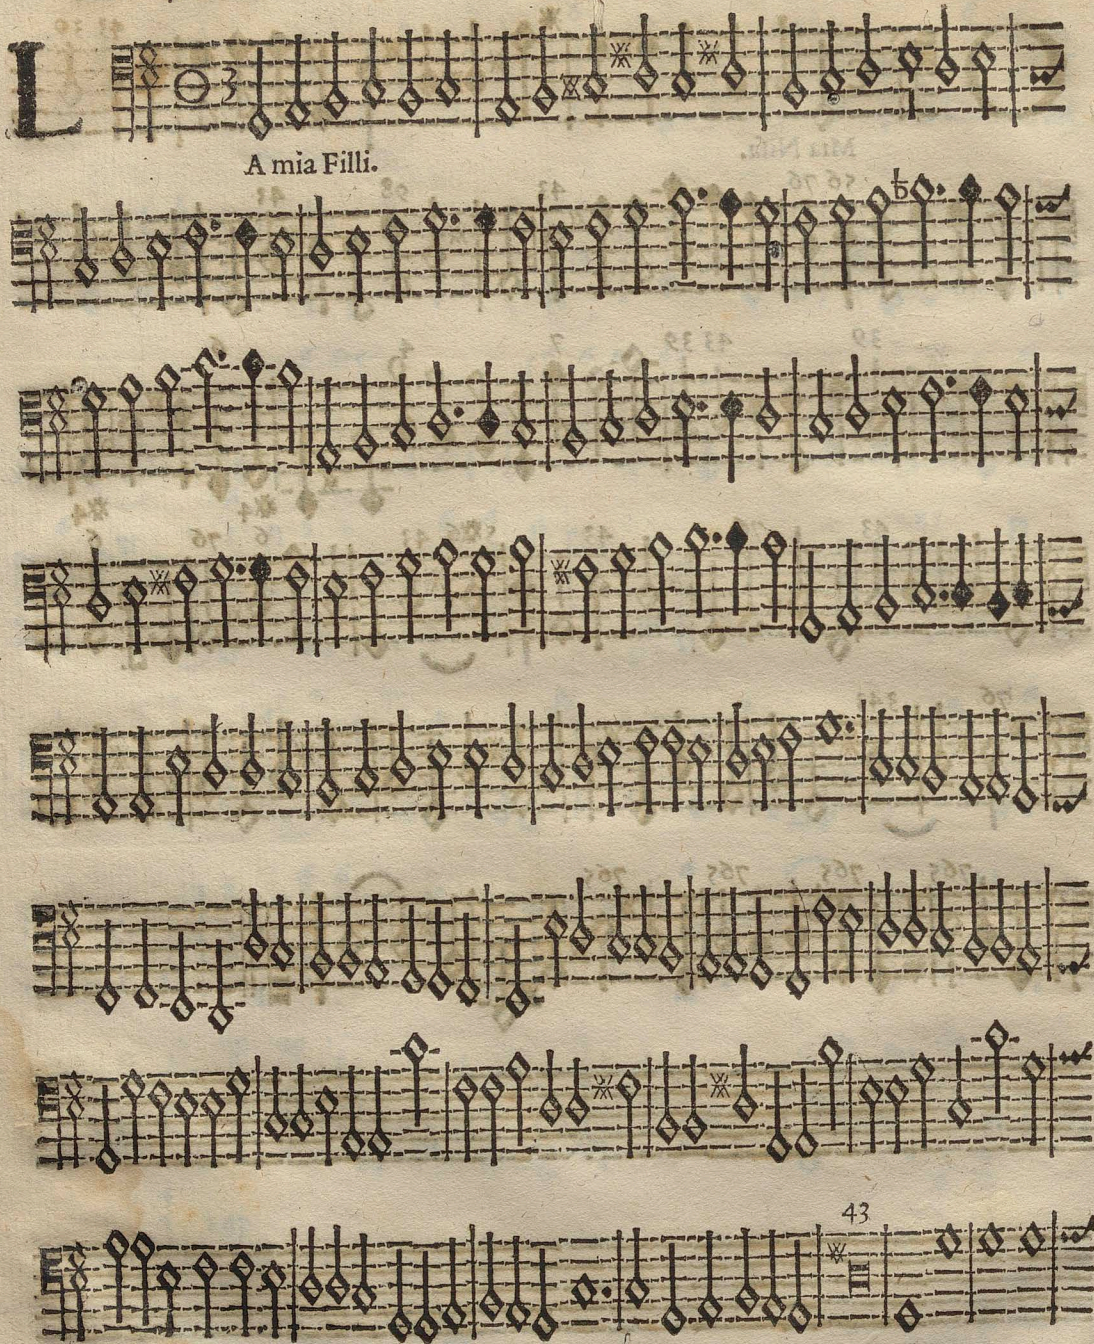 L
3
3
A mia Filli.
43